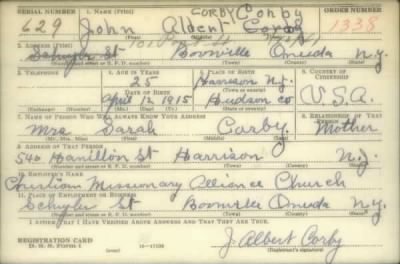 SERIAL NUMBER 1. NAME (Print) CORBY Corby ORDER NUMBER
629 John Albert Corby 1338
(First) (Middle) (Last)
2. ADDRESS (Print)
Schyler St Boonville Oneida N.Y.
(Number and street or R. F. D. number) (Town) (County) (State)
3. TELEPHONE 4. AGE IN YEARS 5. PLACE OF BIRTH 6. COUNTRY OF CITIZENSHIP
25 Harrison N.J.
DATE OF BIRTH (Town or county)
April 12 1915 Hudson Co U.S.A.
(Exchange) (Number) (Mo.) (Day) (Yr.) (State or country)
7. NAME OF PERSON WHO WILL ALWAYS KNOW YOUR ADDRESS 8. RELATIONSHIP OF THAT PERSON
Mrs. Sarah Corby Mother
(Mr., Mrs., Miss) (First) (Middle) (Last)
9. ADDRESS OF THAT PERSON
540 Hamilton St Harrison N.J.
(Number and street or R. F. D. number) (Town) (County) (State)
10. EMPLOYER'S NAME
Christian Missionary Alliance Church
11. PLACE OF EMPLOYMENT OR BUSINESS
Schyler St Boonville Oneida N.Y.
(Number and street or R. F. D. number) (Town) (County) (State)
I AFFIRM THAT I HAVE VERIFIED ABOVE ANSWERS AND THAT THEY ARE TRUE.
REGISTRATION CARD
D. S. S. Form 1 16—17105 J. Albert Corby
(Registrant's signature)